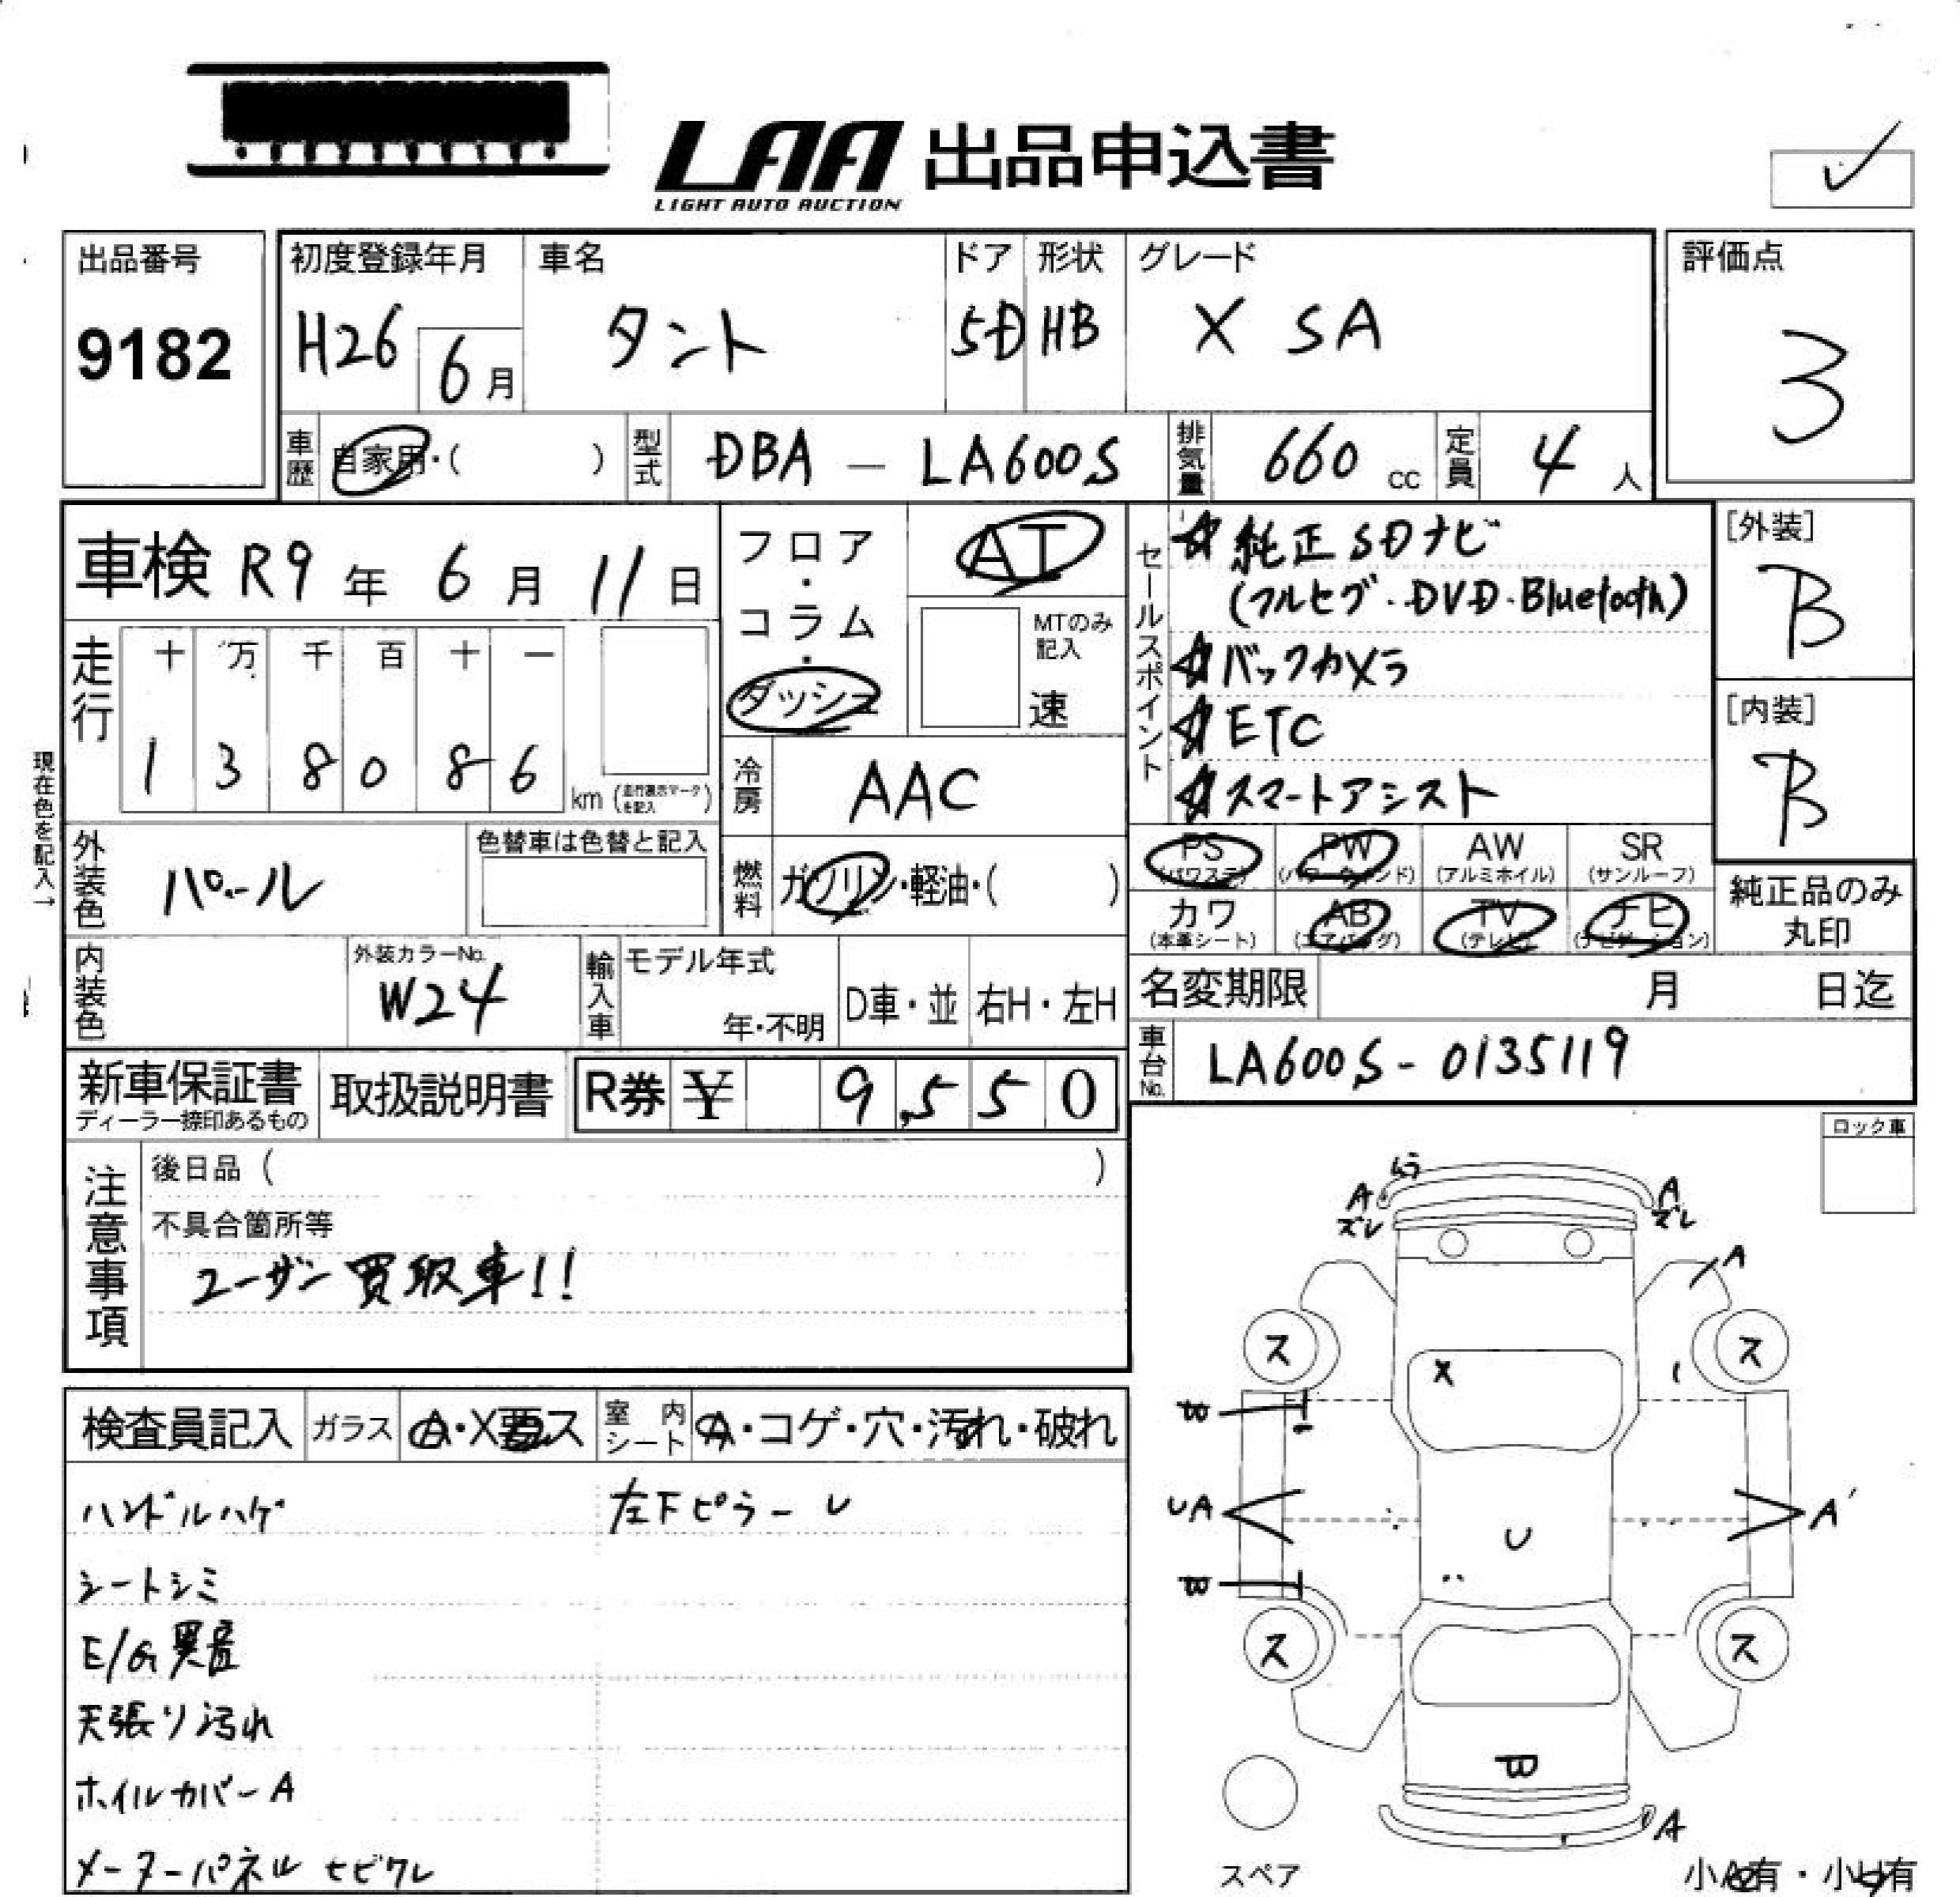 LAA 出品申込書
LIGHT AUTO AUCTION
出品番号
9182
初度登録年月
H26 6月
車名
タント
ドア
5D
形状
HB
グレード
X SA
評価点
3
車歴 自家用・( )
型式 DBA - LA600S
排気量 660 cc
定員 4 人
車検 R9年 6月 11日
走行
十 万 千 百 十 一
1 3 8 0 8 6 km (走行表示マークを記入)
フロア・コラム・ダッシュ
AT
MTのみ記入
速
冷房 AAC
セールスポイント
☆純正SDナビ
(フルセグ・DVD・Bluetooth)
☆バックカメラ
☆ETC
☆スマートアシスト
[外装]
B
[内装]
B
現在色を記入→
外装色 パール
色替車は色替と記入
燃料 ガソリン・軽油・( )
PS (パワステ) PW (パワーウィンド) AW (アルミホイル) SR (サンルーフ)
カワ (本革シート) AB (エアバッグ) TV (テレビ) ナビ (ナビゲーション)
純正品のみ
丸印
内装色
外装カラーNo.
W24
輸入車
モデル年式
年・不明
D車・並
右H・左H
名変期限 月 日迄
車台No. LA600S-0135119
新車保証書
ディーラー捺印あるもの
取扱説明書
R券 ¥ 9,550
注意事項
後日品 ( )
不具合箇所等
ユーザー買取車!!
ロック車
検査員記入
ガラス A・X要ス
室内シート A・コゲ・穴・汚れ・破れ
ハンドルハゲ
左下ピラーU
シートシミ
E/G異音
天張り汚れ
ホイルカバーA
メーターパネルヒビワレ
A
ズレ
A
ズレ
A
ス
ス
X
B
UA
A'
U
B
ス
ス
B
A
スペア
小A有・小U有